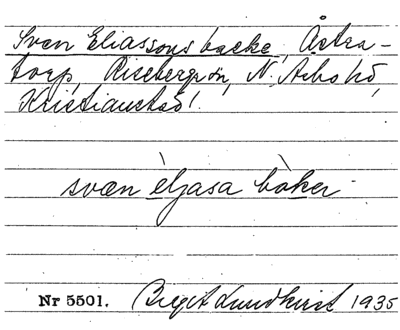 Sven Eliassons backe, Åstra-
torp, Riseberga sn, N. Åsbo hd,
Kristianstad l.
svæn èljasa bàker
Nr 5501. Birgit Lundkvist 1935